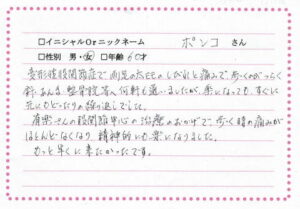 □イニシャルOrニックネーム ポンコ さん
□性別 男・女 □年齢 60才
変形性股関節症で両足の太ももの しびれと痛みで歩くのがつらく
針、あんま、整骨院等へ何軒も通いましたが、楽になっても、すぐに
元にもどったりの繰り返しでした。
さんの股関節中心の治療のおかげで、歩く時の痛みが
ほとんどなくなり 精神的にも楽になりました。
もっと早くに来たかったです。